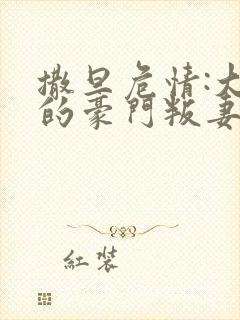 撒旦危情:大
的豪門叛妻
紅裝